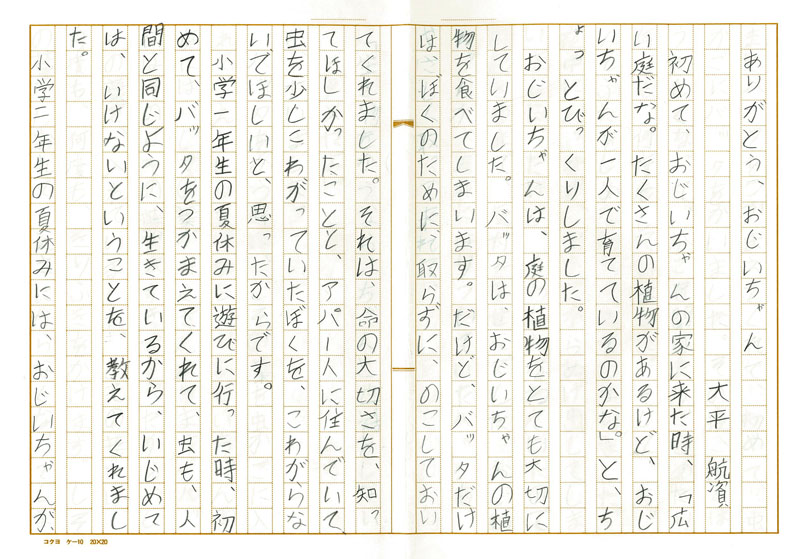 ありがとう、おじいちゃん
大平
初めて、おじいちゃんの家に来た時、「広
い庭だな。たくさんの植物があるけど、おじ
いちゃんが一人で育てているのかな。」と、ち
ょっとびっくりしました。
おじいちゃんは、庭の植物をとても大切に
していました。バッタは、おじいちゃんの植
物を食べてしまいます。だけど、バッタだけ
は、ぼくのために、取らずに、のこしておい
てくれました。それは、命の大切さを、知っ
てほしかったことと、アパートに住んでいて、
虫を少しこわがっていたぼくを、こわがらな
いでほしいと、思ったからです。
小学一年生の夏休みに遊びに行った時、初
めて、バッタをつかまえてくれて、虫も、人
間と同じように、生きているから、いじめて
は、いけないということを、教えてくれまし
た。
小学二年生の夏休みには、おじいちゃんが、
コクヨ ケー10 20×20